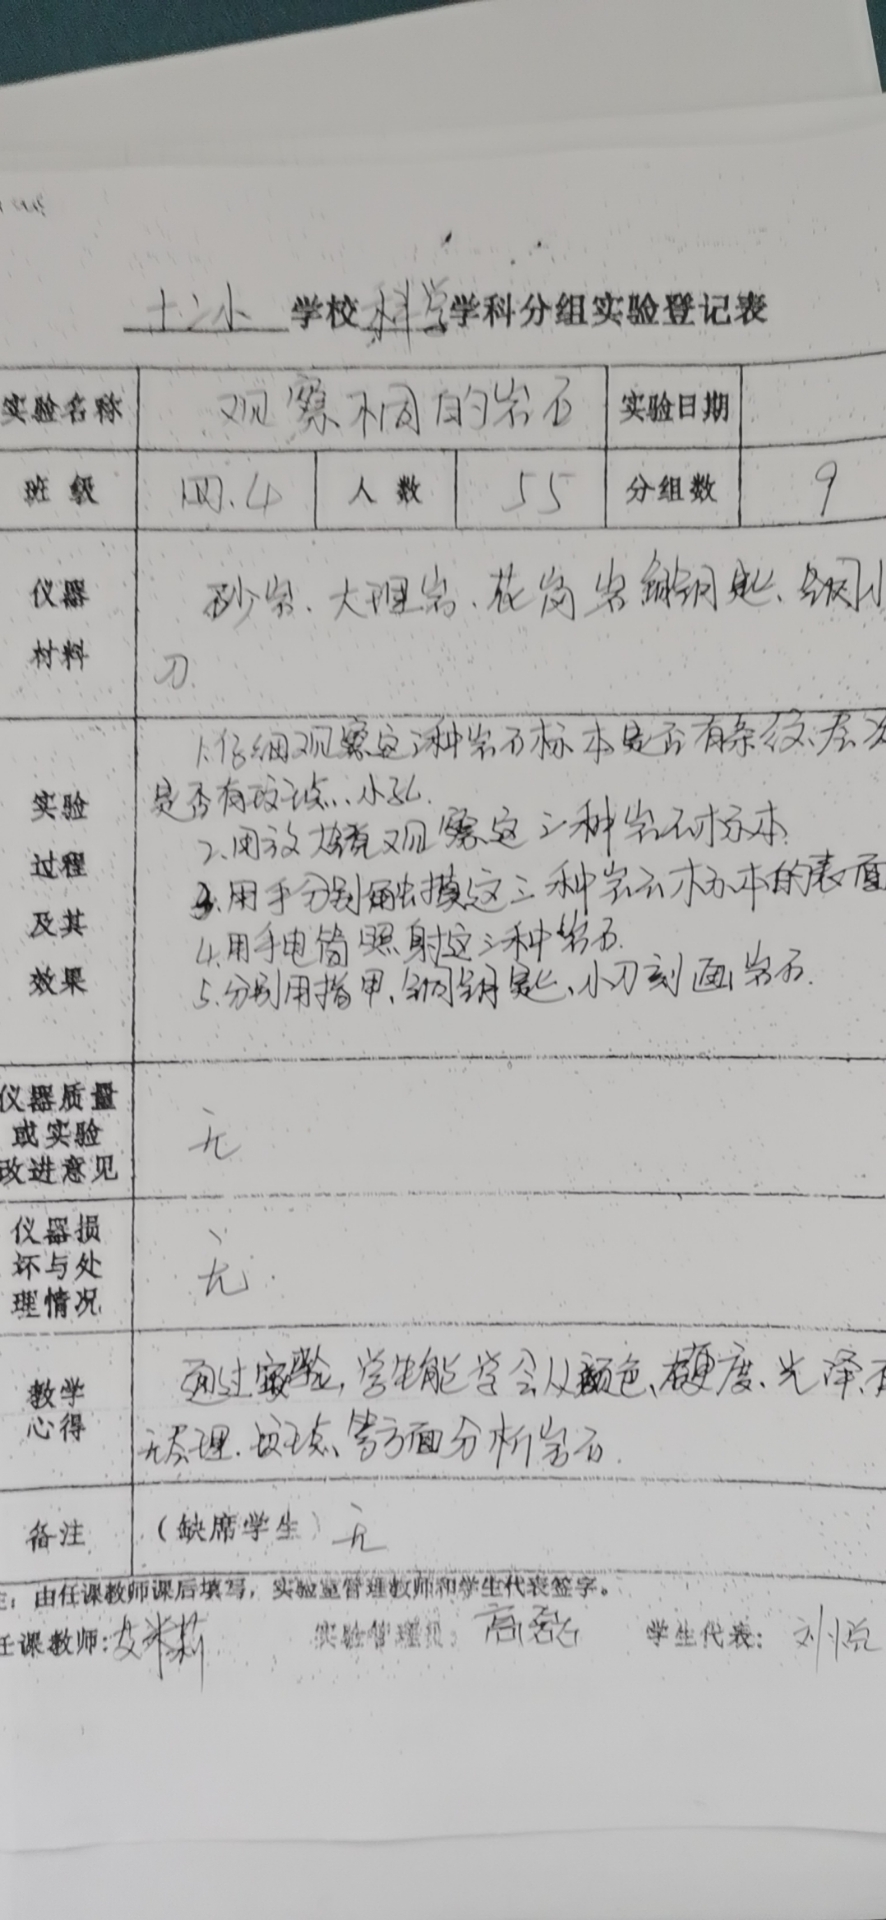 十二小学校科学学科分组实验登记表
实验名称 观察不同的岩石 实验日期
班级 四.4 人数 55 分组数 9
仪器材料
砂岩、大理岩、花岗岩 铜钥匙、钢小
刀.
实验过程及其效果
1.仔细观察这三种岩石标本是否有条纹、层次
是否有斑点、小孔.
2.用放大镜观察这三种岩石标本.
3.用手分别触摸这三种岩石标本的表面
4.用手电筒照射这三种岩石.
5.分别用指甲、铜钥匙、小刀刻画岩石.
仪器质量或实验改进意见 无
仪器损坏与处理情况 无
教学心得
通过实验,学生能学会从颜色、硬度、光泽、有
无层理、斑点、等方面分析岩石.
备注 (缺席学生) 无
由任课教师课后填写,实验室管理教师和学生代表签字。
任课教师: 实验管理员: 学生代表: